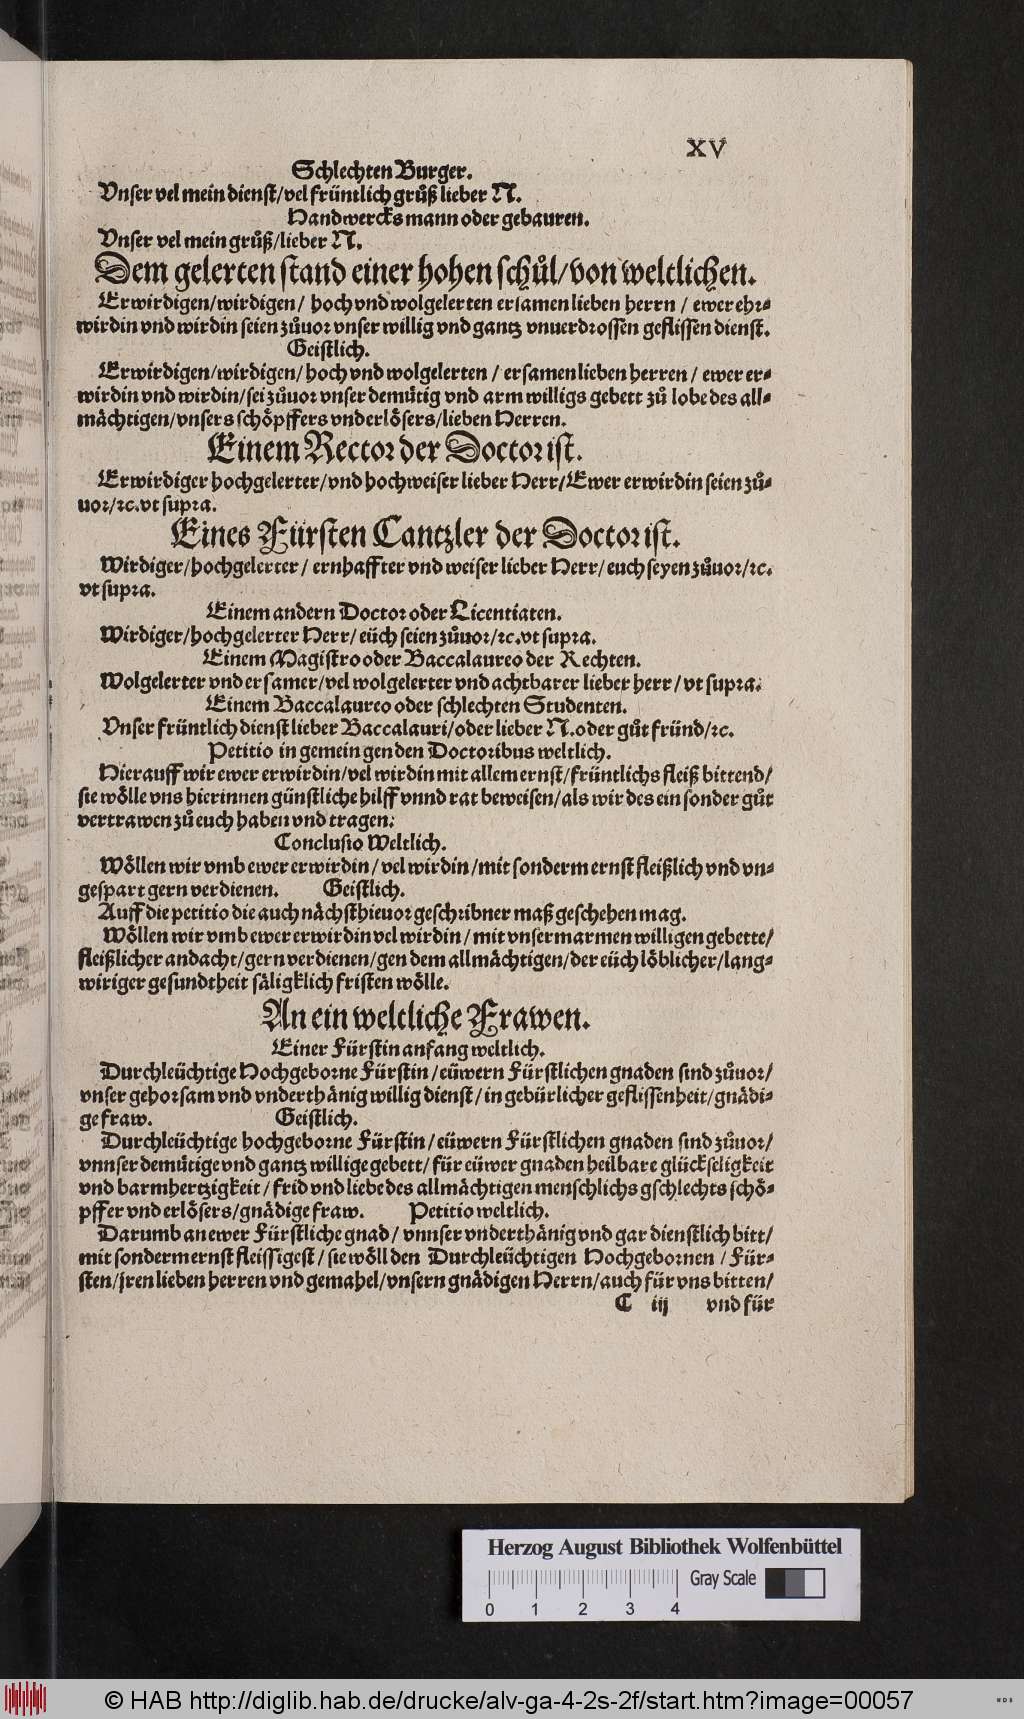 XV
Schlechten Burger.
Vnser vel mein dienst/vel früntlich grůß lieber N.
Handwercks mann oder gebauren.
Vnser vel mein grůß/lieber N.
Dem gelerten stand einer hohen schůl/von weltlichen.
Erwirdigen/wirdigen/ hoch vnd wolgelerten ersamen lieben herrn / ewer ehr⸗
wirdin vnd wirdin seien zůuor vnser willig vnd gantz vnuerdrossen geflissen dienst.
Geistlich.
Erwirdigen/wirdigen/hoch vnd wolgelerten / ersamen lieben herren / ewer er⸗
wirdin vnd wirdin/sei zůuor vnser demütig vnd arm willigs gebett zů lobe des all⸗
mächtigen/vnsers schöpffers vnd erlösers/lieben Herren.
Einem Rector der Doctor ist.
Erwirdiger hochgelerter/vnd hochweiser lieber Herr/Ewer erwirdin seien zů⸗
uor/ꝛc. vt supra.
Eines Fürsten Cantzler der Doctor ist.
Wirdiger/hochgelerter/ ernhaffter vnd weiser lieber Herr/euch seyen zůuor/ꝛc.
vt supra.
Einem andern Doctor oder Licentiaten.
Wirdiger/hochgelerter Herr/eüch seien zůuor/ꝛc. vt supra.
Einem Magistro oder Baccalaureo der Rechten.
Wolgelerter vnd ersamer/vel wolgelerter vnd achtbarer lieber herr/vt supra.
Einem Baccalaureo oder schlechten Studenten.
Vnser früntlich dienst lieber Baccalauri/oder lieber N. oder gůt fründ/ꝛc.
Petitio in gemein gen den Doctoribus weltlich.
Hierauff wir ewer erwirdin/vel wirdin mit allem ernst/früntlichs fleiß bittend/
sie wölle vns hierinnen günstliche hilff vnnd rat beweisen/als wir des ein sonder gůt
vertrawen zů euch haben vnd tragen.
Conclusio Weltlich.
Wöllen wir vmb ewer erwirdin/vel wirdin/mit sonderm ernst fleißlich vnd vn⸗
gespart gern verdienen. Geistlich.
Auff die petitio die auch nächst hieuor geschribner maß geschehen mag.
Wöllen wir vmb ewer erwirdin vel wirdin/mit vnserm armen willigen gebette/
fleißlicher andacht/gern verdienen/gen dem allmächtigen/der eüch löblicher/lang⸗
wiriger gesundtheit säligklich fristen wölle.
An ein weltliche Frawen.
Einer Fürstin anfang weltlich.
Durchleüchtige Hochgeborne Fürstin/eüwern Fürstlichen gnaden sind zůuor/
vnser gehorsam vnd vnderthänig willig dienst/in gebürlicher geflissenheit/gnädi⸗
ge fraw. Geistlich.
Durchleüchtige hochgeborne Fürstin/eüwern Fürstlichen gnaden sind zůuor/
vnnser demütige vnd gantz willige gebett/für eüwer gnaden heilbare glückseligkeit
vnd barmhertzigkeit/frid vnd liebe des allmächtigen menschlichs gschlechts schö⸗
pffer vnd erlösers/gnädige fraw. Petitio weltlich.
Darumb an ewer Fürstliche gnad/vnnser vnderthänig vnd gar dienstlich bitt/
mit sonderm ernst fleissigest/sie wöll den Durchleüchtigen Hochgebornen/Für⸗
sten/jren lieben herren vnd gemahel/vnsern gnädigen Herrn/auch für vns bitten/
C iij vnd für
Herzog August Bibliothek Wolfenbüttel
Gray Scale
0 1 2 3 4
© HAB http://diglib.hab.de/drucke/alv-ga-4-2s-2f/start.htm?image=00057